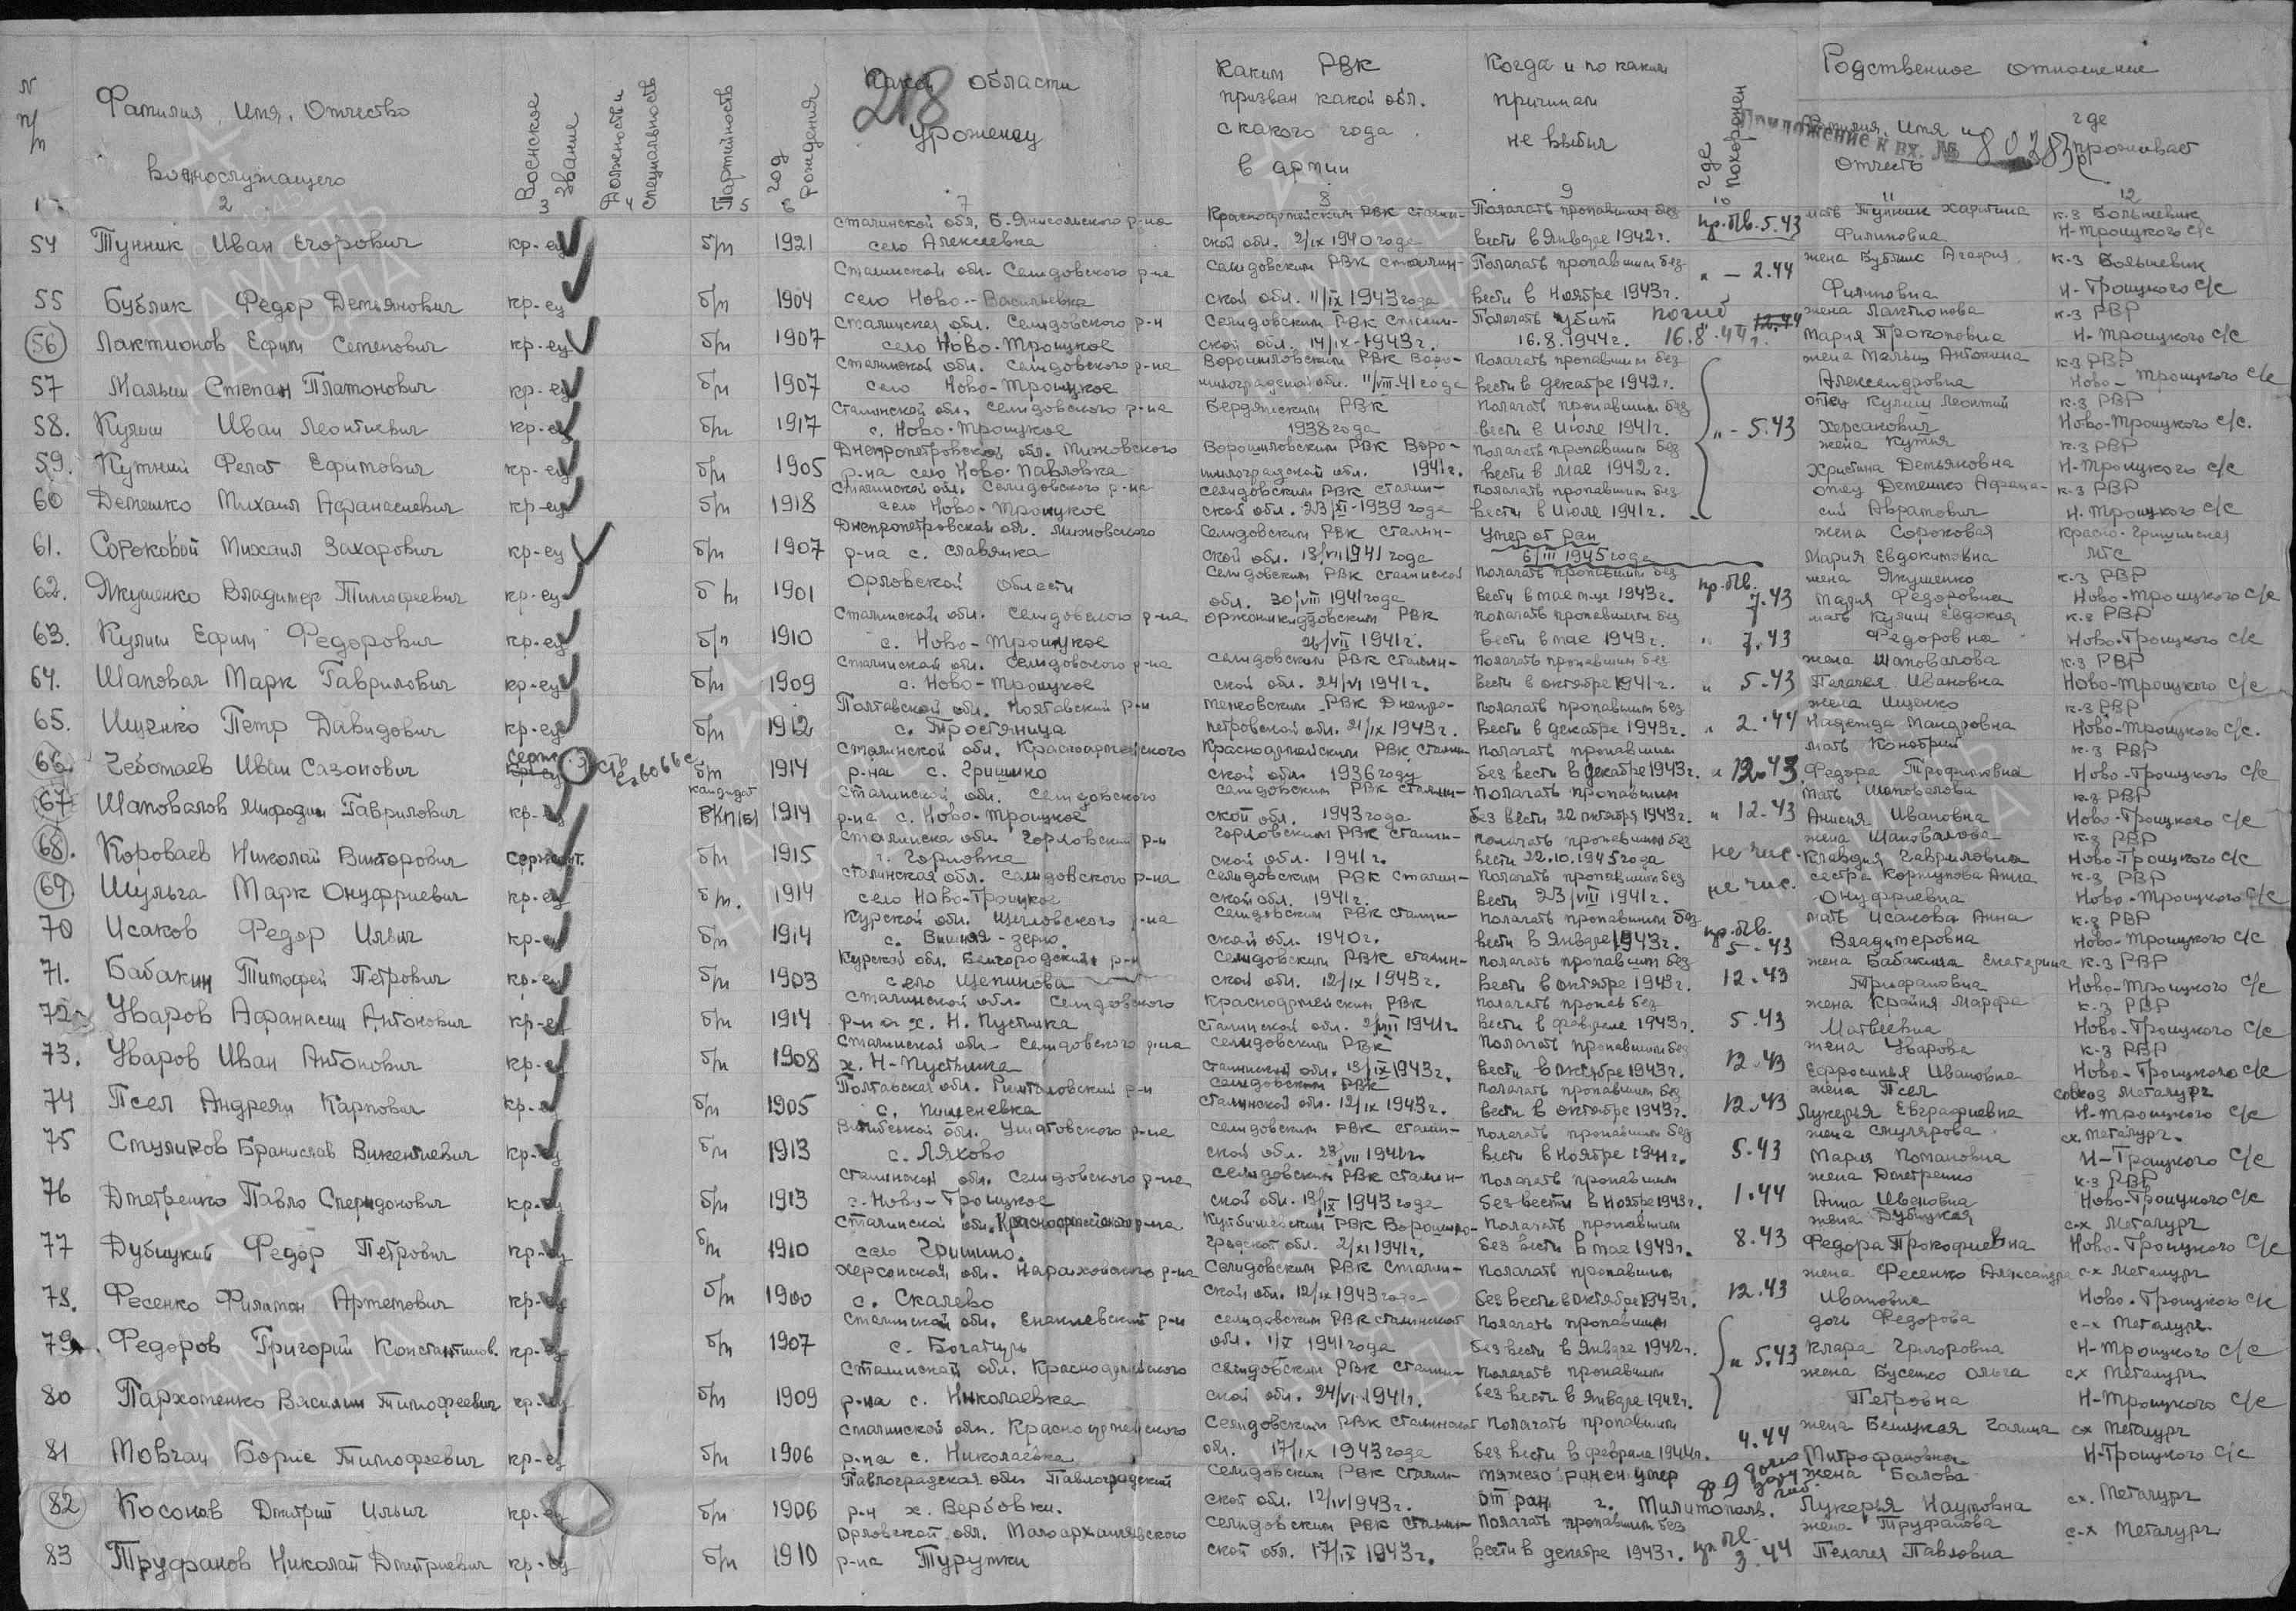 N п/п
Фамилия, Имя, Отчество военнослужащего
Воинское звание
Должность и специальность
Партийность
год рождения
области уроженец
218
Каким РВК призван какой обл. с какого года в армии
Когда и по каким причинам не выбыл
где похоронен
Родственное отношение
Фамилия, Имя и Отчество
где проживает
Приложение к вх. № 80283
1 2 3 4 5 6 7 8 9 10 11 12
54 Тунник Иван Егорович кр-ец б/п 1921 Сталинской обл. Б. Янисольского р-на село Алексеевка Красноармейским РВК Сталинской обл. 2/IX 1940 года Полагать пропавшим без вести в Январе 1942 г. пр. п/в. 5.43 мать Тунник Харитина Филиповна к-з Большевик Н-Троицкого с/с
55 Бублик Федор Демьянович кр-ец б/п 1904 Сталинской обл. Селидовского р-на село Ново-Васильевка Селидовским РВК Сталинской обл. 11/IX 1943 года Полагать пропавшим без вести в Ноябре 1943 г. " - 2.44 жена Бублик Агафия Филиповна к-з Большевик Н-Троицкого с/с
56 Лактионов Ефим Семенович кр-ец б/п 1907 Сталинская обл. Селидовского р-н село Ново-Троицкое Селидовским РВК Сталинской обл. 14/IX-1943 г. Полагать убит 16.8.1944 г. погиб 16.8.44 г. 12.44 жена Лактионова Мария Прокоповна к-з РВР Н-Троицкого с/с
57 Малыш Степан Платонович кр-ец б/п 1907 Сталинской обл. Селидовского р-на село Ново-Троицкое Ворошиловским РВК Ворошилоградской обл. 11/VIII-41 года Полагать пропавшим без вести в декабре 1942 г. жена Малыш Антонина Александровна к-з РВР Ново-Троицкого с/с
58. Кулиш Иван Леонтиевич кр-ец б/п 1917 Сталинской обл. Селидовского р-на с. Ново-Троицкое Бердянским РВК 1938 года Полагать пропавшим без вести в Июле 1941 г. " - 5.43 отец Кулиш Леонтий Херсанович к-з РВР Ново-Троицкого с/с.
59. Кутний Фелат Ефимович кр-ец б/п 1905 Днепропетровской обл. Межовского р-на село Ново-Павловка Ворошиловским РВК Ворошилоградской обл. 1941 г. Полагать пропавшим без вести в мае 1942 г. жена Кутния Христина Демьяновна к-з РВР Н-Троицкого с/с
60 Демешко Михаил Афанасиевич кр-ец б/п 1918 Сталинской обл. Селидовского р-на село Ново-Троицкое Селидовским РВК Сталинской обл. 23/XI-1939 года Полагать пропавшим без вести в Июле 1941 г. отец Демешко Афанасий Аврамович к-з РВР Н-Троицкого с/с
61. Сороковой Михаил Захарович кр-ец б/п 1907 Днепропетровской обл. Межовского р-на с. Славянка Селидовским РВК Сталинской обл. 13/VII 1941 года Умер от ран 6/III 1945 года жена Сороковая Мария Евдокимовна Красно-Гришинская МТС
62. Якушенко Владимер Тимофеевич кр-ец б/п 1901 Орловской области Селидовским РВК Сталинской обл. 30/VIII 1941 года Полагать пропавшим без вести в мае м-це 1943 г. пр. п/в. 7.43 жена Якушенко Мария Федоровна к-з РВР Ново-Троицкого с/с
63. Кулиш Ефим Федорович кр-ец б/п 1910 Сталинской обл. Селидовского р-на с. Ново-Троицкое Орженикидзовским РВК 26/VII 1941 г. Полагать пропавшим без вести в мае 1943 г. " 7.43 мать Кулиш Евдокия Федоровна к-з РВР Ново-Троицкого с/с
64. Шаповал Марк Гаврилович кр-ец б/п 1909 Сталинской обл. Селидовского р-на с. Ново-Троицкое Селидовским РВК Сталинской обл. 24/VI 1941 г. Полагать пропавшим без вести в октябре 1941 г. " 5.43 жена Шаповалова Пелагея Ивановна к-з РВР Ново-Троицкого с/с
65. Ищенко Петр Давидович кр-ец б/п 1912 Полтавской обл. Полтавский р-н с. Тростяница РВК Днепропетровской обл. 21/IX 1943 г. Полагать пропавшим без вести в декабре 1943 г. " 2.44 жена Ищенко Надежда Мандровна к-з РВР Ново-Троицкого с/с.
66. Чеботаев Иван Сазонович серж кр-ец б/п 1914 Сталинской обл. Красноармейского р-на с. Гришино Красноармейским РВК Сталинской обл. 1936 году Полагать пропавшим без вести в декабре 1943 г. " 12.43 мать Конобрий Федора Трофимовна к-з РВР Ново-Троицкого с/с
67 Шаповалов Мифодий Гаврилович кр-ец кандидат ВКП(б) 1914 Сталинской обл. Селидовского р-на с. Ново-Троицкое Селидовским РВК Сталинской обл. 1943 года Полагать пропавшим без вести 22 октября 1943 г. " 12.43 мать Шаповалова Анисия Ивановна к-з РВР Ново-Троицкого с/с
68. Короваев Николай Викторович сержант. б/п 1915 Сталинска обл. Горловский р-н г. Горловка Горловским РВК Сталинской обл. 1941 г. Полагать пропавшим без вести 22.10.1945 года не чис. жена Шаповалова Клавдия Гавриловна к-з РВР Ново-Троицкого с/с
69 Шульга Марк Онуфриевич кр-ец б/п. 1914 Сталинская обл. Селидовского р-на село Ново-Троицкое Селидовским РВК Сталинской обл. 1941 г. Полагать пропавшим без вести 23/VIII 1941 г. не чис. сестра Коршунова Анна Онуфриевна к-з РВР Ново-Троицкого с/с
70 Исаков Федор Ильич кр-ец б/п 1914 Курской обл. р-на с. Вишняя-зерно Селидовским РВК Сталинской обл. 1940 г. Полагать пропавшим без вести в Январе 1943 г. пр. п/в. 5-43 мать Исакова Анна Владимеровна к-з РВР Ново-Троицкого с/с
71. Бабакин Тимофей Петрович кр-ец б/п 1903 Курской обл. Белгородский р-н село Щепинова Селидовским РВК Сталинской обл. 12/IX 1943 г. Полагать пропавшим без вести в октябре 1943 г. 12.43 жена Бабакина Екатерина Трифановна к-з РВР Ново-Троицкого с/с
72. Уваров Афанасий Антонович кр-ец б/п 1914 Сталинской обл. Селидовского р-на х. Н. Пустынка Красноармейским РВК Сталинской обл. 2/VIII 1941 г. Полагать пропав без вести в феврале 1943 г. 5.43 жена Крайня Марфа Матвеевна к-з РВР Ново-Троицкого с/с
73. Уваров Иван Антонович кр-ец б/п 1908 Сталинская обл. Селидовского р-на х. Н-Пустынка Селидовским РВК Сталинской обл. 13/IX 1943 г. Полагать пропавшим без вести в Октябре 1943 г. 12.43 жена Уварова Ефросинья Ивановна к-з РВР Ново-Троицкого с/с
74 Псел Андреян Карпович кр-ец б/п 1905 Полтавская обл. р-н с. Пишеневка Селидовским РВК Сталинской обл. 12/IX 1943 г. Полагать пропавшим без вести в октябре 1943 г. 12.43 жена Псел Лукерья Евграфиевна совхоз Металург Н-Троицкого с/с
75 Стуляров Бранислав Викентиевич кр-ец б/п 1913 Витебской обл. р-на с. Ляхово Селидовским РВК Сталинской обл. 28/VII 1941 г. Полагать пропавшим без вести в Ноябре 1941 г. 5.43 жена Стулярова Мария Романовна сх. Металург. Н-Троицкого с/с
76 Дметренко Павло Сперидонович кр-ец б/п 1913 Сталинской обл. Селидовского р-на с. Ново-Троицкое Селидовским РВК Сталинской обл. 13/IX 1943 года Полагать пропавшим без вести в Ноябре 1943 г. 1.44 жена Дметренко Анна Ивановна к-з РВР Ново-Троицкого с/с
77 Дубицкий Федор Петрович кр-ец б/п 1910 Сталинской обл. Красноармейского р-на село Гришино. Куйбишевским РВК Ворошиловградской обл. 2/XI 1941 г. Полагать пропавшим без вести в мае 1943 г. 8.43 жена Дубицкая Федора Прокофиевна с-х Металург Ново-Троицкого с/с
78. Фесенко Филатон Артемович кр-ец б/п 1900 Херсонской обл. р-на с. Скалево Селидовским РВК Сталинской обл. 12/IX 1943 года Полагать пропавшим без вести в октябре 1943 г. 12.43 жена Фесенко Александра Ивановна с-х Металург Ново-Троицкого с/с
79. Федоров Григорий Константинов. кр-ец б/п 1907 Сталинской обл. Енакиевский р-н с. Богатирь Селидовским РВК Сталинской обл. 1/X 1941 года Полагать пропавшим без вести в Январе 1942 г. " 5.43 дочь Федорова Клара Григоровна с-х Металург. Н-Троицкого с/с
80 Пархоменко Василий Тимофеевич кр-ец б/п 1909 Сталинской обл. Красноармейского р-на с. Николаевка Селидовским РВК Сталинской обл. 24/VI-1941 г. Полагать пропавшим без вести в Январе 1942 г. жена Бусенко Ольга Петровна с-х Металург Н-Троицкого с/с
81 Мовчан Борис Тимофеевич кр-ец б/п 1906 Сталинской обл. Красноармейского р-на с. Николаевка Селидовским РВК Сталинской обл. 17/IX 1943 года Полагать пропавшим без вести в феврале 1944 г. 4.44 жена Белицкая Галина Митрофановна сх Металург Н-Троицкого с/с
82 Косонов Дмитрий Ильич кр-ец б/п 1906 Павлоградская обл. Павлоградский р-н х. Вербовки. Селидовским РВК Сталинской обл. 12/IV 1943 г. тяжело ранен умер от ран г. Милитополь. жена Балова Лукерья Наумовна сх. Металург
83 Труфанов Николай Дмитриевич кр-ец б/п 1910 Орловской обл. Малоархангельского р-на Турутки Селидовским РВК Сталинской обл. 17/IX 1943 г. Полагать пропавшим без вести в декабре 1943 г. пр. п/в. 3.44 жена Труфанова Пелагея Павловна с-х Металург
ПАМЯТЬ НАРОДА